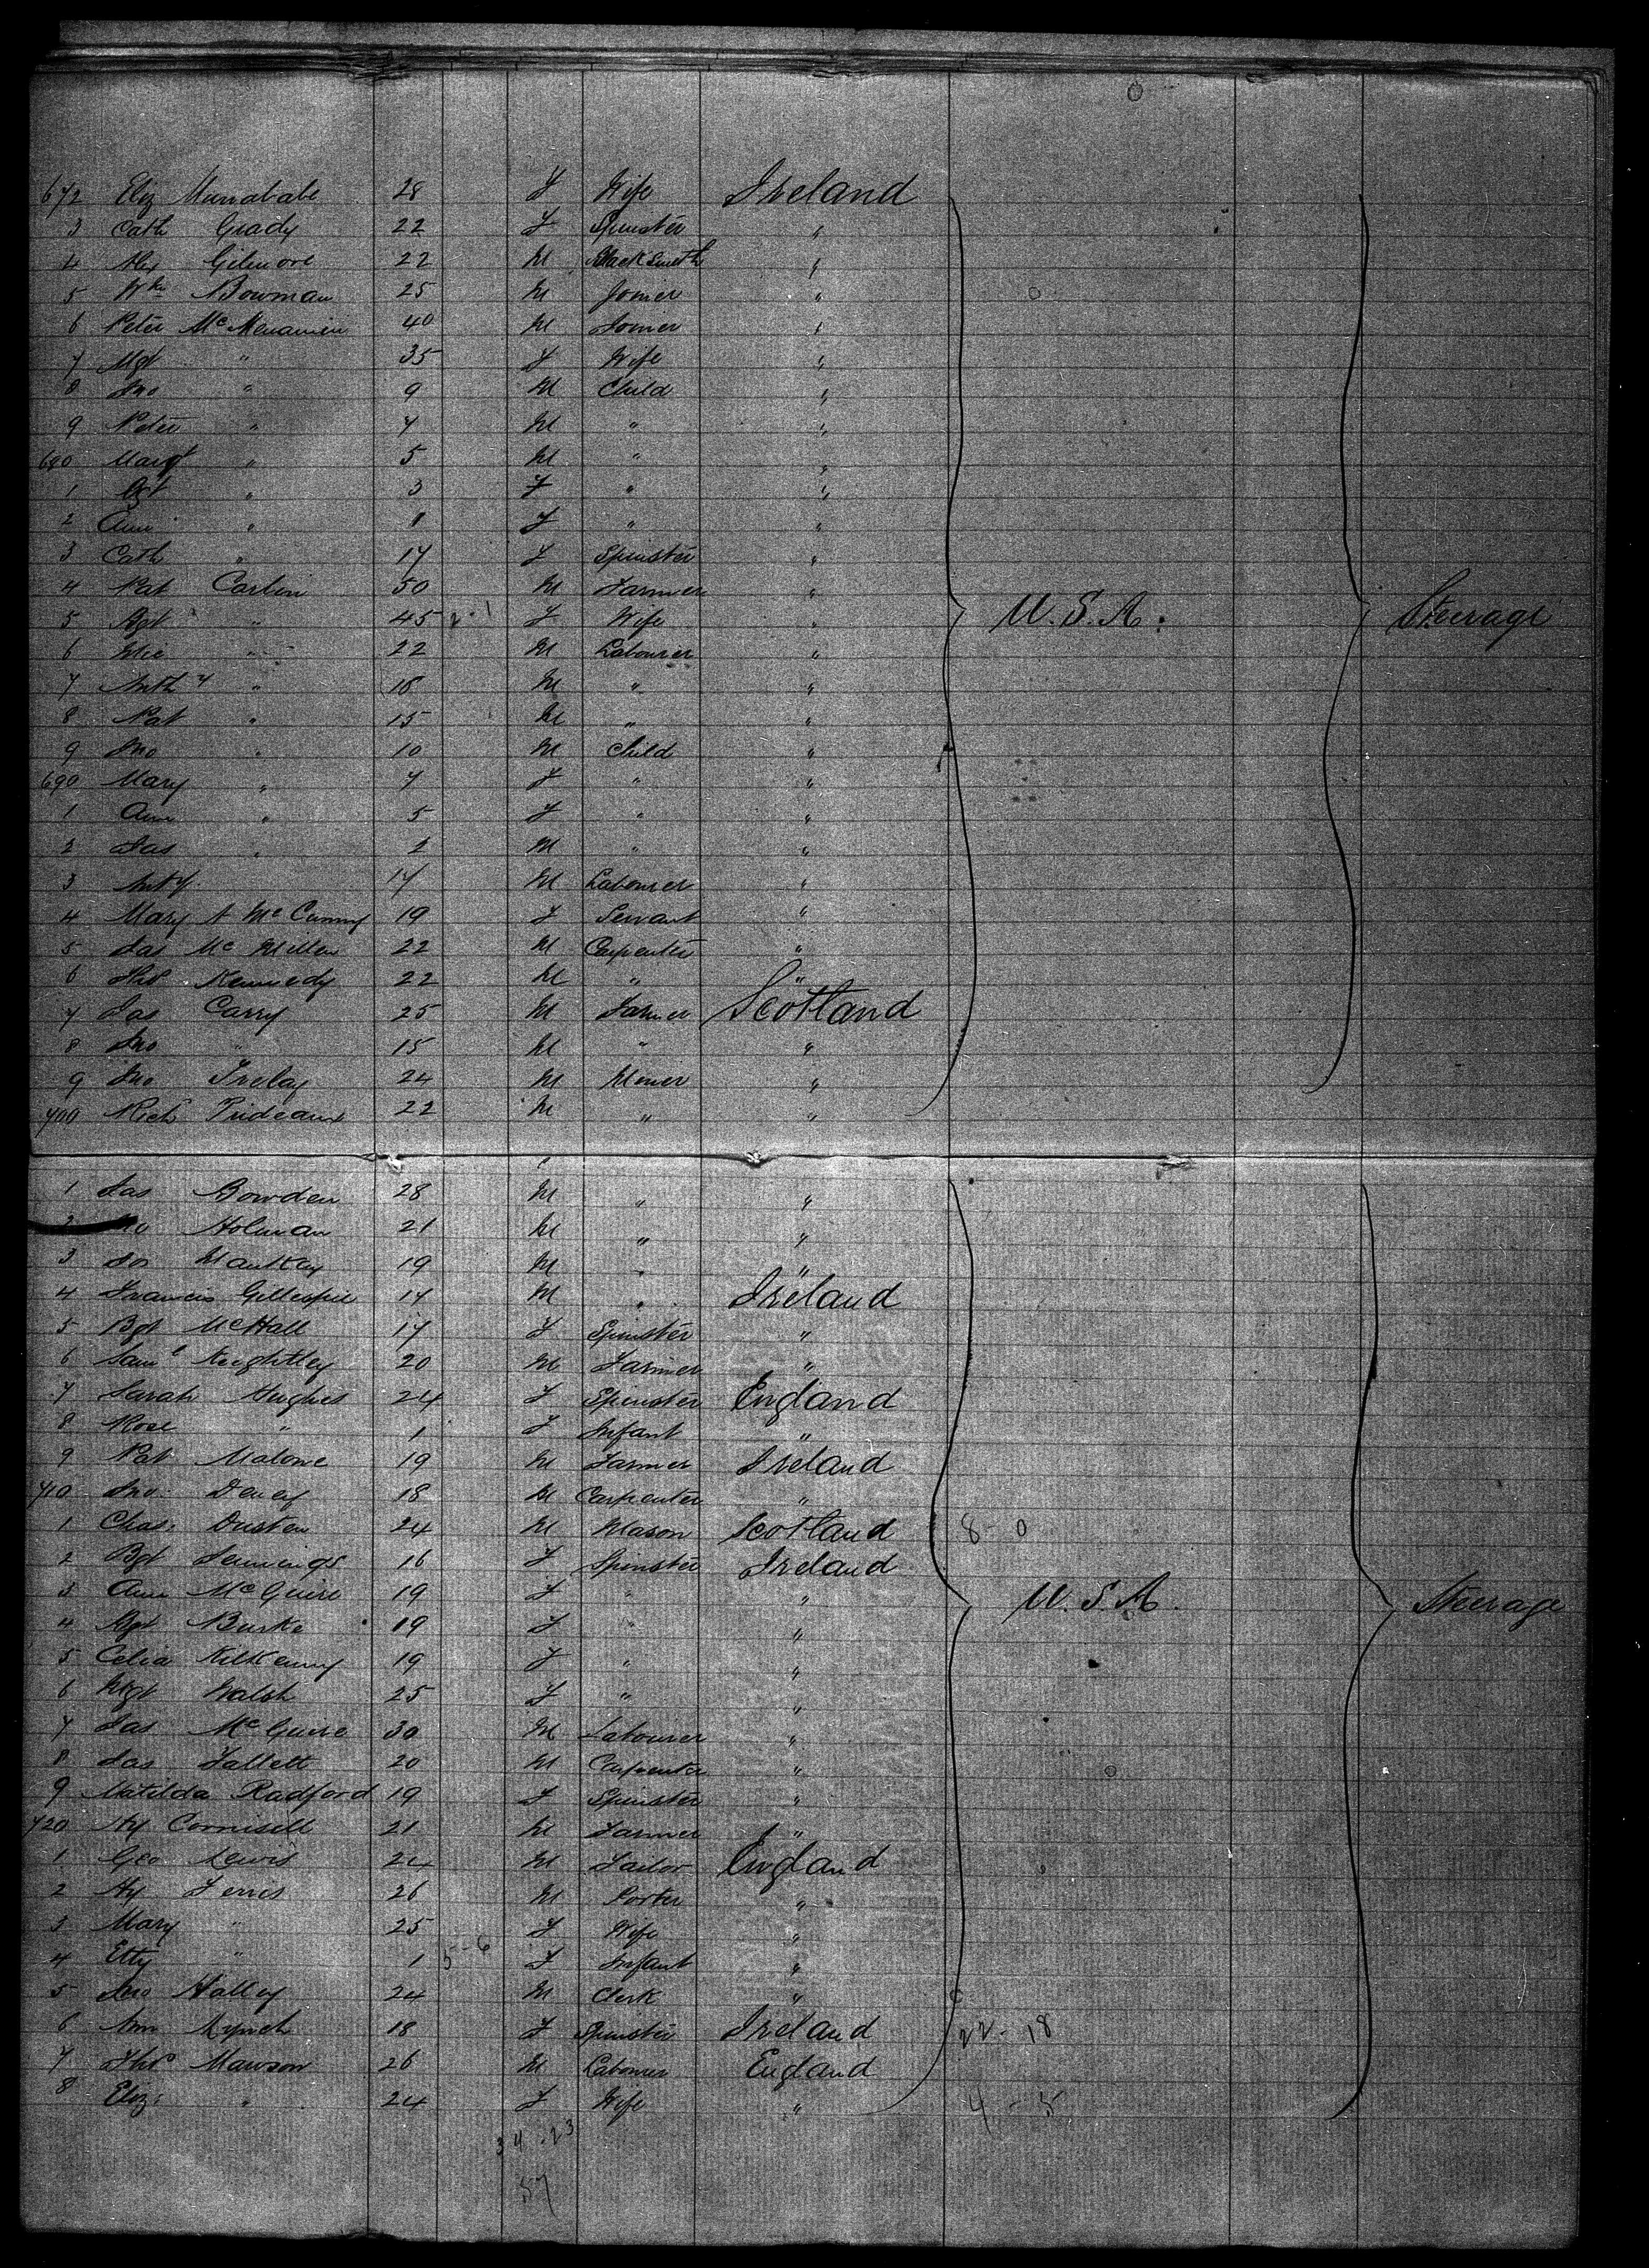 672 Eliz 28 F Wife Ireland
3 Cath Grady 22 F Spinster "
4 Alex Gilmore 22 M Blacksmith "
5 Wm Bowman 25 M Joiner "
6 Peter McMenamin 40 M Joiner "
7 Mgt " 35 F Wife "
8 Jno " 9 M Child "
9 Peter " 7 M " "
680 Margt " 5 M " "
1 " 3 F " "
2 Ann " 1 F " "
3 Cath " 17 F Spinster "
4 Pat Carlin 50 M Farmer "
5 " 45 2-1 F Wife " U.S.A. Steerage
6 Mic " 22 M Labourer "
7 Anthy " 18 M " "
8 Pat " 15 M " "
9 Jno " 10 M Child "
690 Mary " 7 F " "
1 Ann " 5 F " "
2 Jas " 2 M " "
3 Anty. 17 M Labourer "
4 Mary A McCunny 19 F Servant "
5 Jas McMillen 22 M Carpenter "
6 Thos Kennedy 22 M " "
7 Jas Carry 25 M Farmer Scotland
8 Jno " 15 M " "
9 Jno 24 M Miner "
700 Rich Prideaux 22 M " "
1 Jas Bowden 28 M " "
2 Jno Holman 21 M " "
3 Jos 19 M " "
4 Francis Gillespie 17 M " Ireland
5 Bgt McHall 17 F Spinster "
6 Saml Keightley 20 M Farmer "
7 Sarah Hughes 24 F Spinster England
8 Rose " 1 F Infant "
9 Pat Malone 19 M Farmer Ireland
710 Jno. 18 M Carpenter "
1 Chas. 24 M Mason Scotland 8-0
2 Bgt Jennings 16 F Spinster Ireland
3 Ann McGuire 19 F " " U.S.A. Steerage
4 Burke 19 F " "
5 Celia Kilkenny 19 F " "
6 Mgt Walsh 25 F " "
7 Jas McGuire 30 M Labourer "
8 Jas Fallett 20 M Carpenter "
9 Matilda Radford 19 F Spinster "
720 Hy 21 M Farmer "
1 Geo Lewis 24 M Tailor England
2 Hy 26 M Porter "
3 Mary " 25 F Wife "
4 Etty " 1 5-6 F Infant "
5 Jno Halley 24 M Clerk "
6 Ann Lynch 18 F Spinster Ireland 22-18
7 Thos Mawson 26 M Labourer England
8 Eliz: " 24 F Wife " 4-5
34.23
57